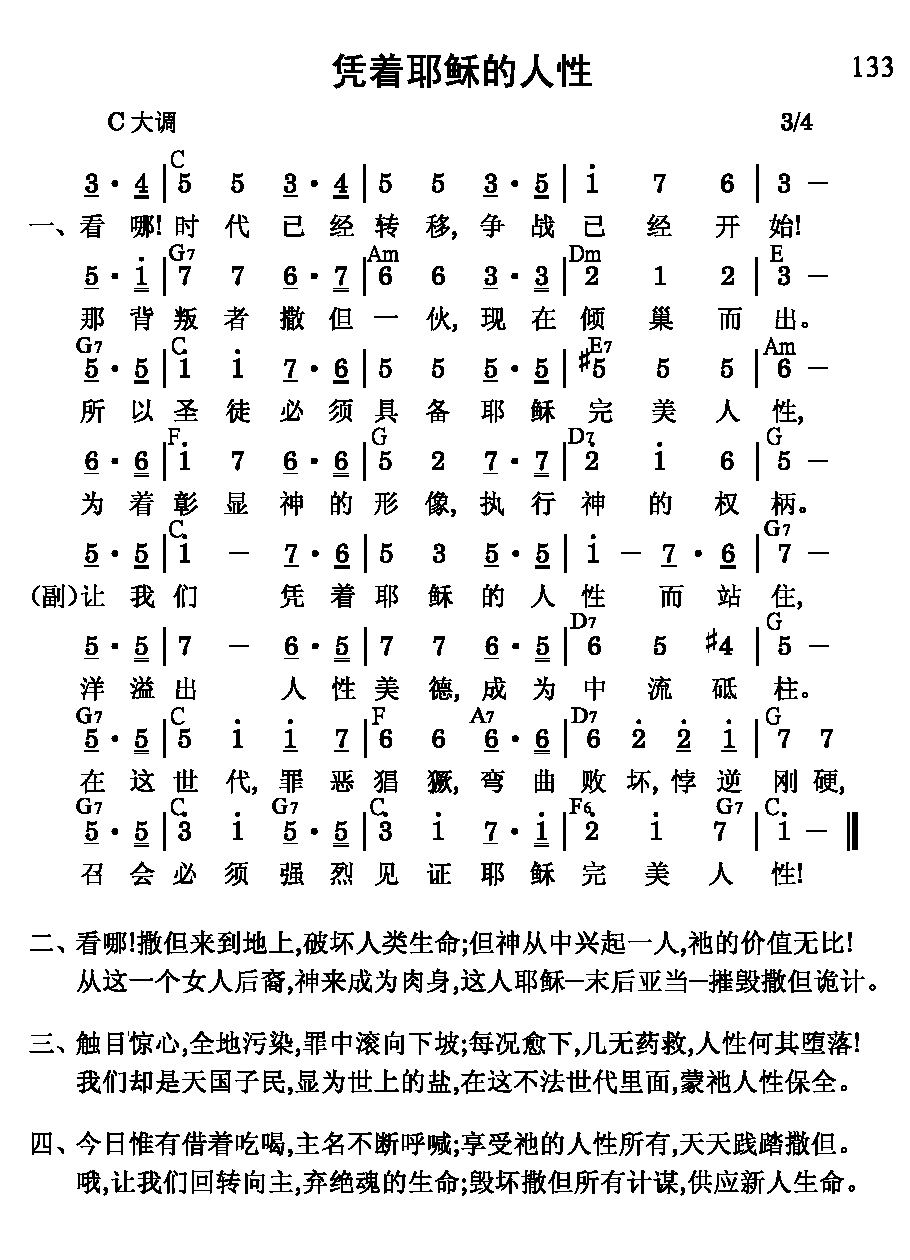 凭着耶稣的人性 133
C 大调 3/4
C
3 · 4 | 5 5 3 · 4 | 5 5 3 · 5 | 1 7 6 | 3 –
一、看 哪! 时 代 已 经 转 移, 争 战 已 经 开 始!
G7 Am Dm E
5 · 1 | 7 7 6 · 7 | 6 6 3 · 3 | 2 1 2 | 3 –
那 背 叛 者 撒 但 一 伙, 现 在 倾 巢 而 出。
G7 C E7 Am
5 · 5 | 1 1 7 · 6 | 5 5 5 · 5 | #5 5 5 | 6 –
所 以 圣 徒 必 须 具 备 耶 稣 完 美 人 性,
F G D7 G
6 · 6 | 1 7 6 · 6 | 5 2 7 · 7 | 2 1 6 | 5 –
为 着 彰 显 神 的 形 像, 执 行 神 的 权 柄。
C G7
5 · 5 | 1 – 7 · 6 | 5 3 5 · 5 | 1 – 7 · 6 | 7 –
(副)让 我 们 凭 着 耶 稣 的 人 性 而 站 住,
D7 G
5 · 5 | 7 – 6 · 5 | 7 7 6 · 5 | 6 5 #4 | 5 –
洋 溢 出 人 性 美 德, 成 为 中 流 砥 柱。
G7 C F A7 D7 G
5 · 5 | 5 1 1 7 | 6 6 6 · 6 | 6 2 2 1 | 7 7
在 这 世 代, 罪 恶 猖 獗, 弯 曲 败 坏, 悖 逆 刚 硬,
G7 C G7 C F6 G7 C
5 · 5 | 3 1 5 · 5 | 3 1 7 · 1 | 2 1 7 | 1 – ‖
召 会 必 须 强 烈 见 证 耶 稣 完 美 人 性!
二、看哪!撒但来到地上,破坏人类生命;但神从中兴起一人,祂的价值无比!
从这一个女人后裔,神来成为肉身,这人耶稣–末后亚当–摧毁撒但诡计。
三、触目惊心,全地污染,罪中滚向下坡;每况愈下,几无药救,人性何其堕落!
我们却是天国子民,显为世上的盐,在这不法世代里面,蒙祂人性保全。
四、今日惟有借着吃喝,主名不断呼喊;享受祂的人性所有,天天践踏撒但。
哦,让我们回转向主,弃绝魂的生命;毁坏撒但所有计谋,供应新人生命。